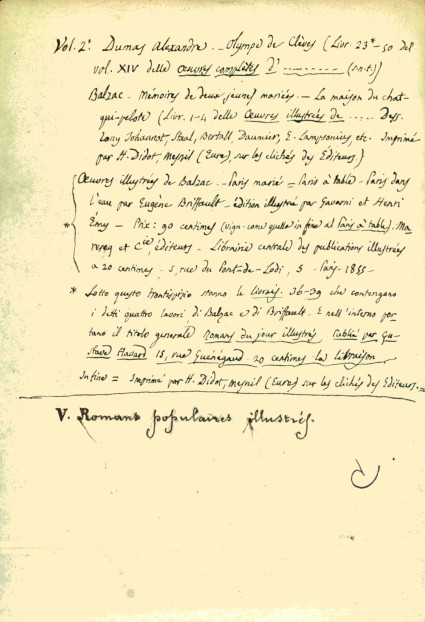 Vol. 2º Dumas Alexandre. - Olympe de Clèves (Livr. 23ª-50 del
vol. XIV delle œuvres complètes d' ........... (s.n.t.))
Balzac. - Mémoires de deux jeunes mariées. - La maison du chat-
qui-pelote (Livr. 1-4 delle Œuvres illustrées de ..... Dess.
Tony Johannot, Staal, Bertall, Daumier, E. Lampsonius, etc. Imprimé
par H. Didot, Mesnil (Eure), sur les clichés des Editeurs.)
Œuvres illustrées de Balzac - Paris marié = Paris à table - Paris dans
l'eau par Eugène Briffault - édition illustrée par Gavarni et Henri
* Emy - Prix: 90 centimes (vign. come quella in fine al Paris à table). Ma
rescq et Cie, Éditeurs. - Librairie centrale des publications illustrées
a 20 centimes. 5, rue du Pont-de-Lodi, 5 - Paris - 1855 -
* Sotto questo frontispizio stanno le livrais. 36-39 che contengono
i detti quattro lavori di Balzac e di Briffault. E nell'interno por
tano il titolo generale Romans du jour illustrés Publié par Gu-
stave Havard 15, rue Guénégaud 20 centimes la livraison
In fine = Imprimé par H. Didot, Mesnil (Eure) sur les clichés des Editeurs. =
V. Romans populaires illustrés.